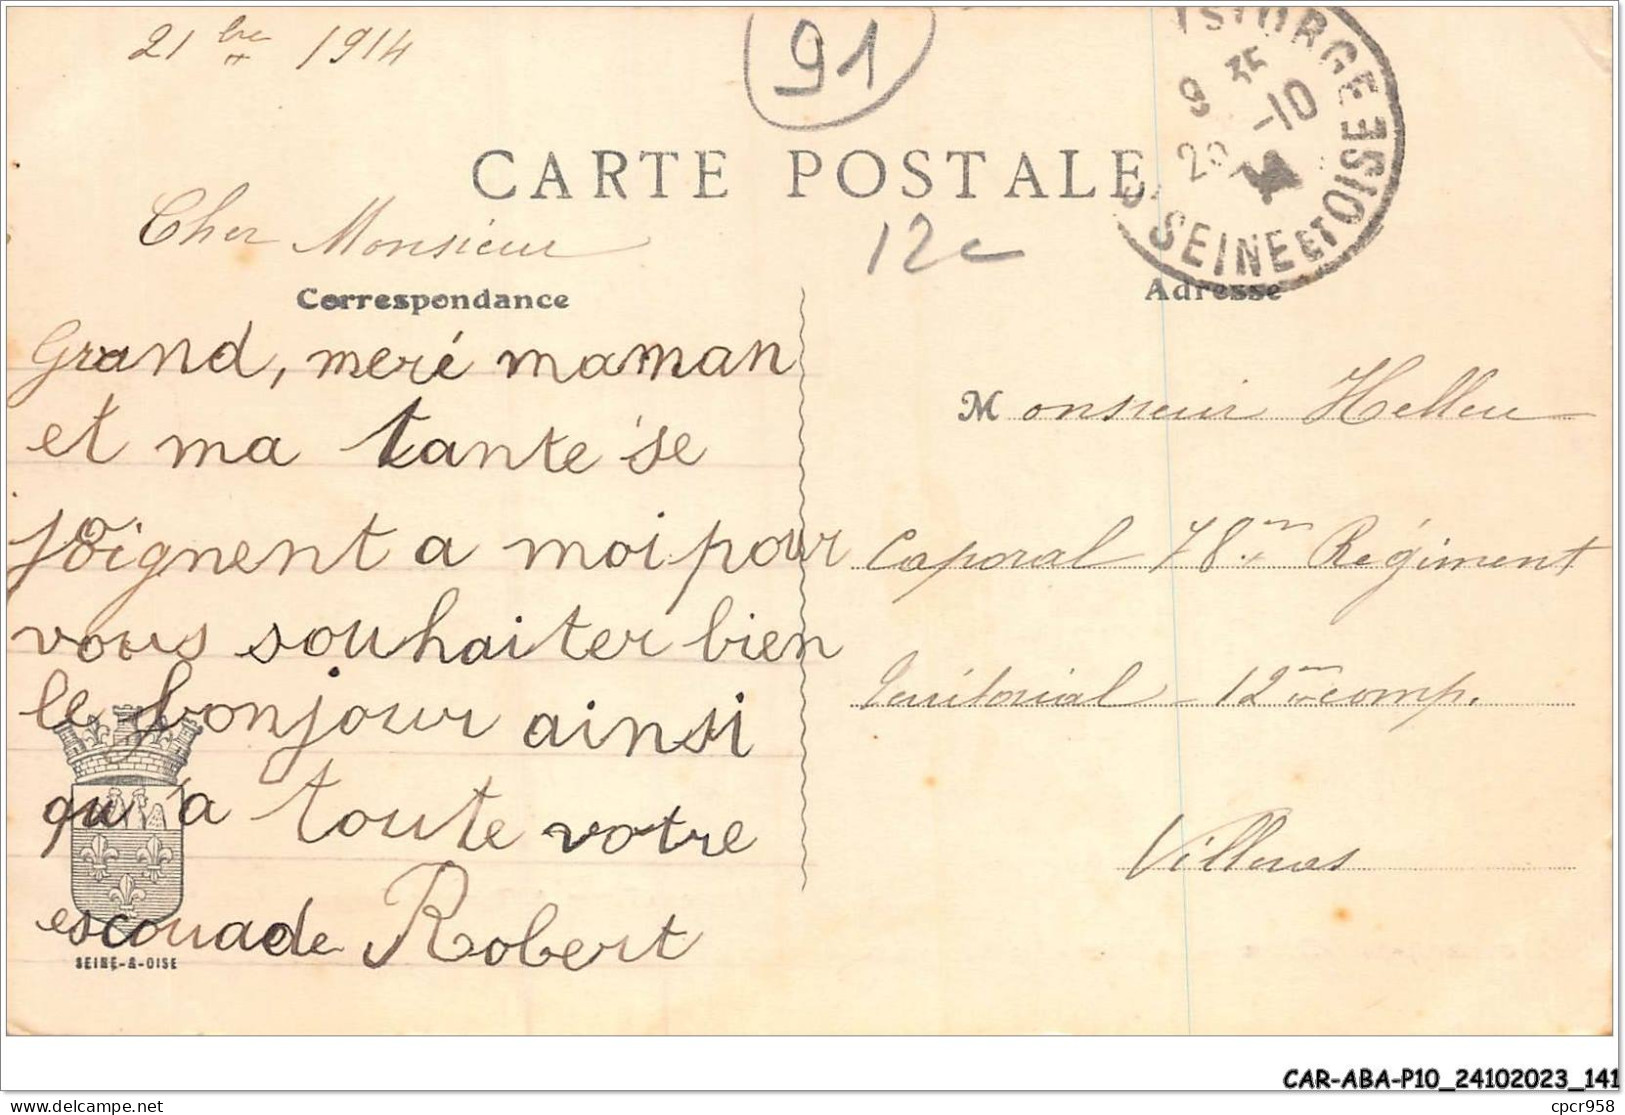 21 bre 1914
91
CARTE POSTALE
9 35
-10
SEINE ET OISE
12c
Cher Monsieur
Correspondance
Adresse
Grand, meré maman
et ma tante se
joignent a moi pour
vous souhaiter bien
le bonjour ainsi
qu'a toute votre
escouade Robert
SEINE-&-OISE
Monsieur Helleu
Caporal 78me Régiment
Territorial 12me comp.
CAR-ABA-P10_24102023_141
delcampe.net
cpcr958